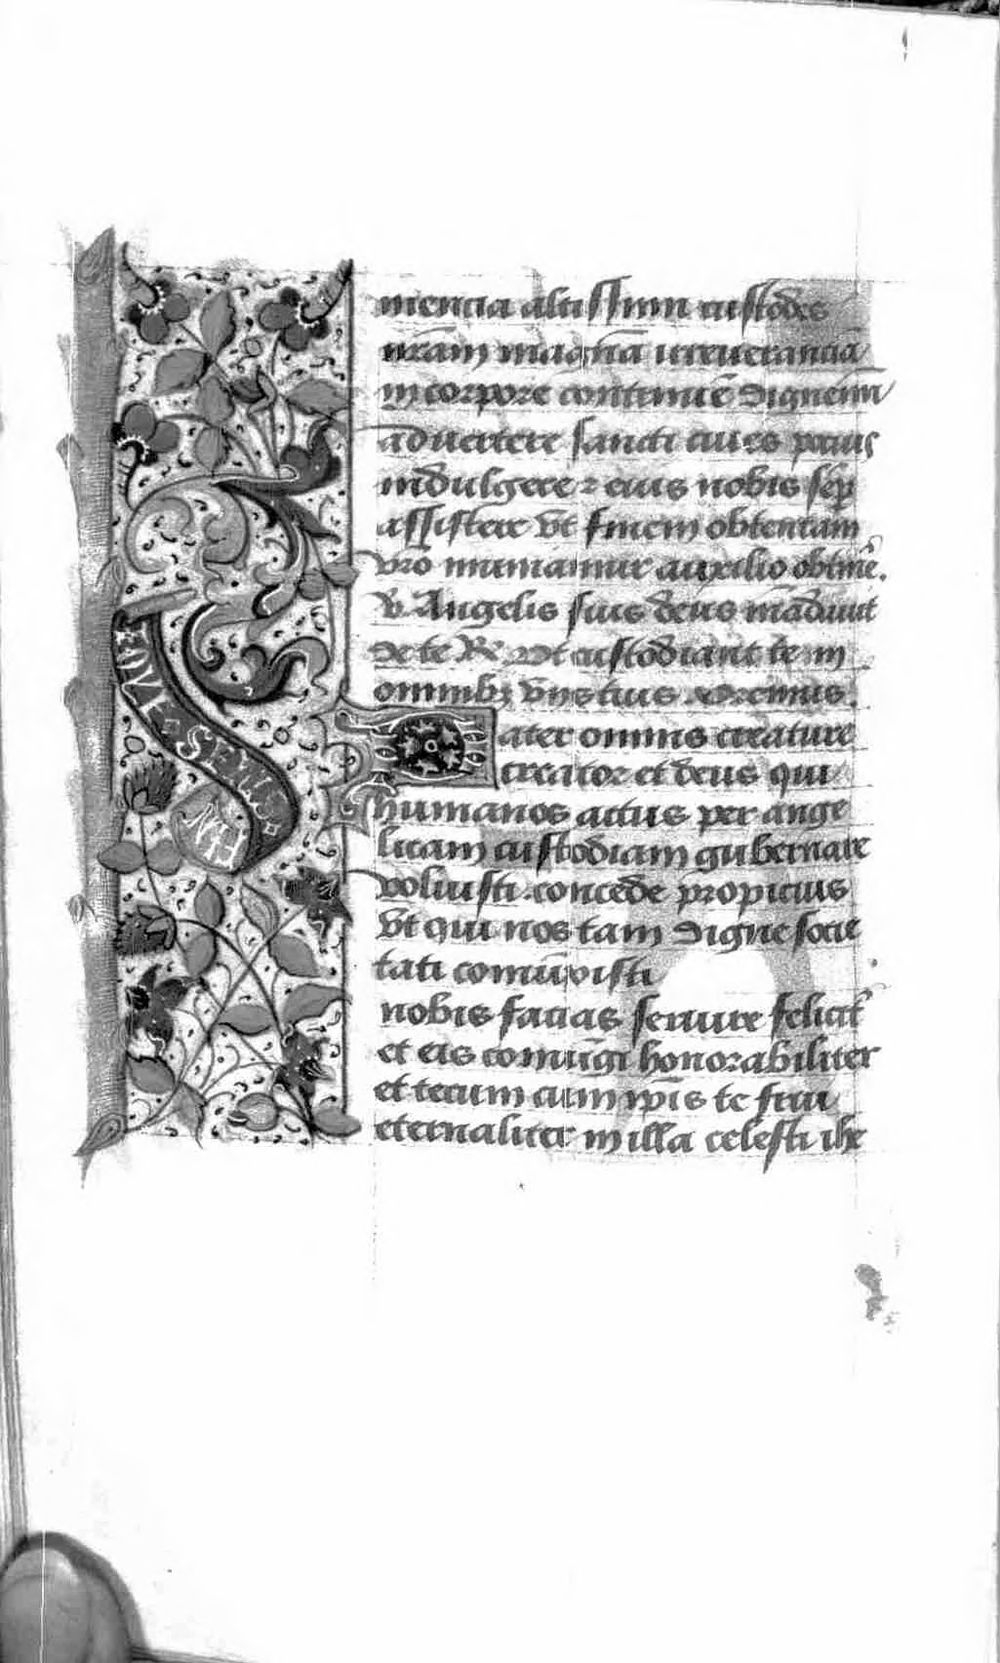 mencia altissimi custodes
nr̄am magnā irreueranciā
in corpore continuē digneim̄
aduertere sancti ciues pocius
indulgere ⁊ eius nobis sēp
assistere vt finem obtentam
vr̄o muniamur auxilio obtinē.
v̄ Angelis suis deus mādauit
de te R̄ Vt custodiant te in
omnibꝫ vijs tuis Oremus.
Pater omnis creature
creator et deus qui
humanos actus per ange
licam custodiam gubernare
voluisti. concede propicius
vt qui nos tam digne socie
tati comūxisti
nobis facias seruire felicit̄
et eis comūgi honorabiliter
et tecum cum ip̄is te frui
eternaliter in illa celesti ihr
SEMEL